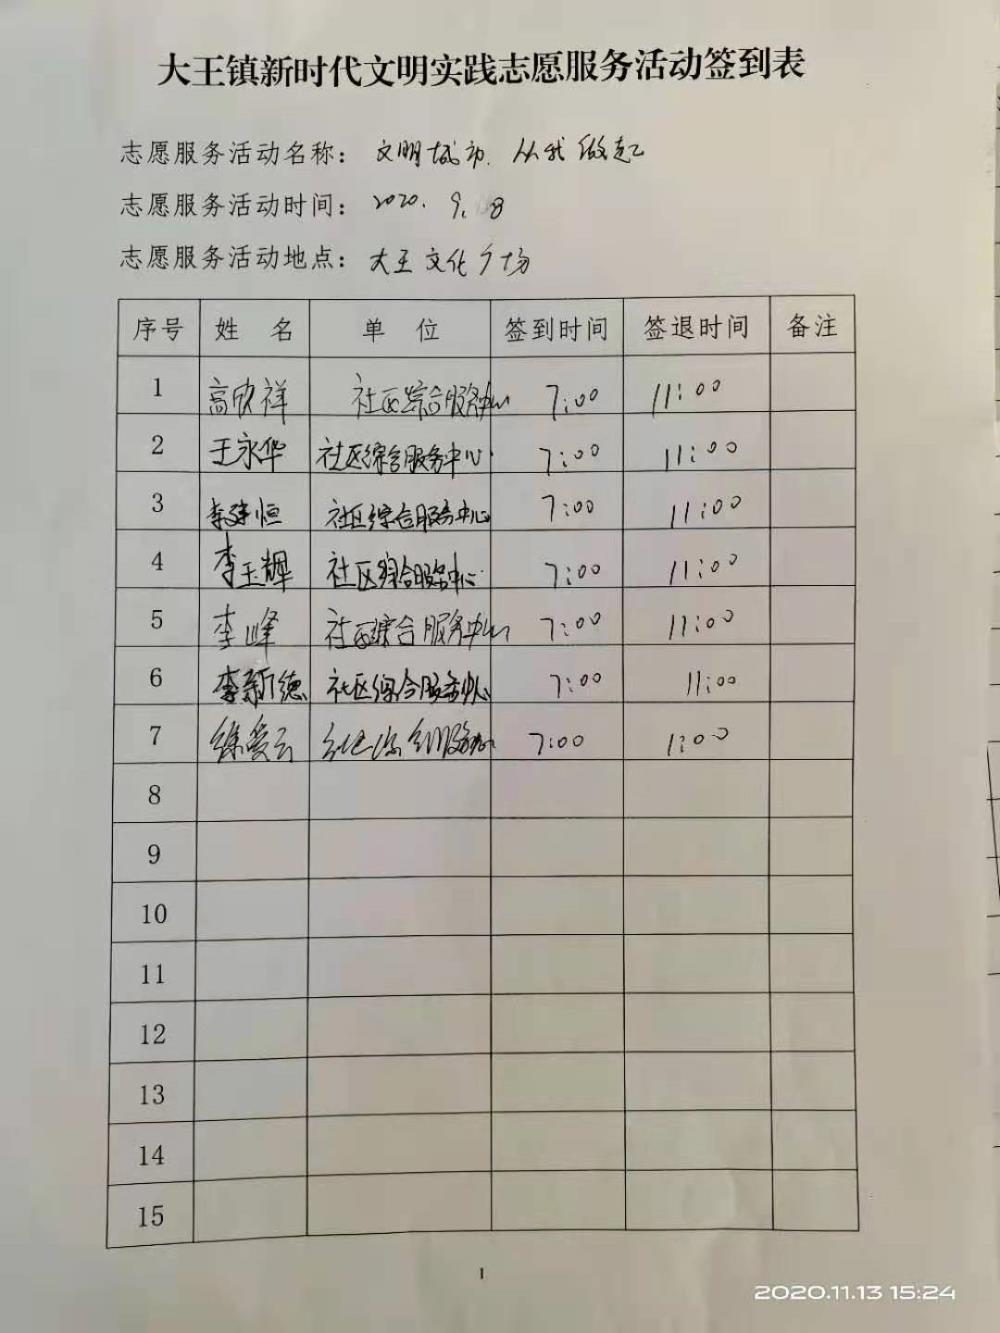 大王镇新时代文明实践志愿服务活动签到表
志愿服务活动名称： 文明城市.从我做起
志愿服务活动时间： 2020. 9. 8
志愿服务活动地点： 大王文化广场
序号 姓 名 单 位 签到时间 签退时间 备注
1 高欣祥 社区综合服务中心 7:00 11:00
2 王永华 社区综合服务中心 7:00 11:00
3 李建恒 社区综合服务中心 7:00 11:00
4 李玉辉 社区综合服务中心 7:00 11:00
5 李峰 社区综合服务中心 7:00 11:00
6 李新德 社区综合服务中心 7:00 11:00
7 徐爱云 社区综合服务中心 7:00 1:00
8
9
10
11
12
13
14
15
1
2020.11.13 15:24